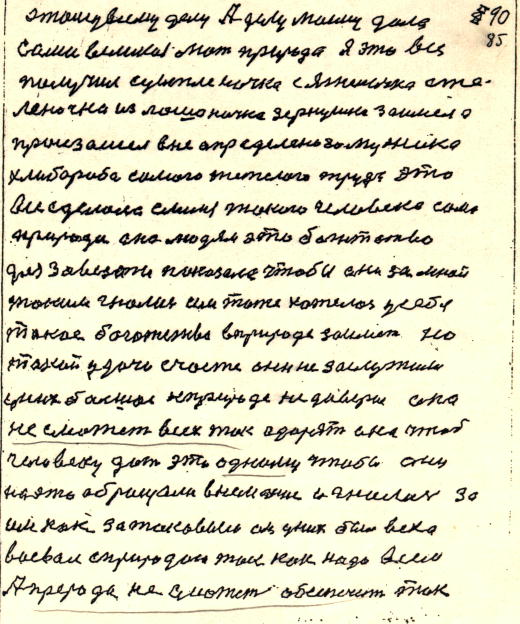 этому всему делу А делу моему дала
сама великая мат природа Я это все
получил с
из зернушка
произашел вне определеного мужика
хлибароба самого тежелого труда Это
все сделала с меня такого человека сама
природа она людям это богатство
для завести показала чтобы они за мной
таким гналис им тоже хотелос у себя
такое богатства в природе заимет но
такой удачи счастя они не заслужили
у них болшое к природе недаверие она
не сможет всех так адарят она чтоб
человеку дат это одному чтобы они
на это обращали внемание и гналис за
им как за таковым он у них был века
воевал с природою так как надо всем
А прерода не сможет обеспечит так
90
85